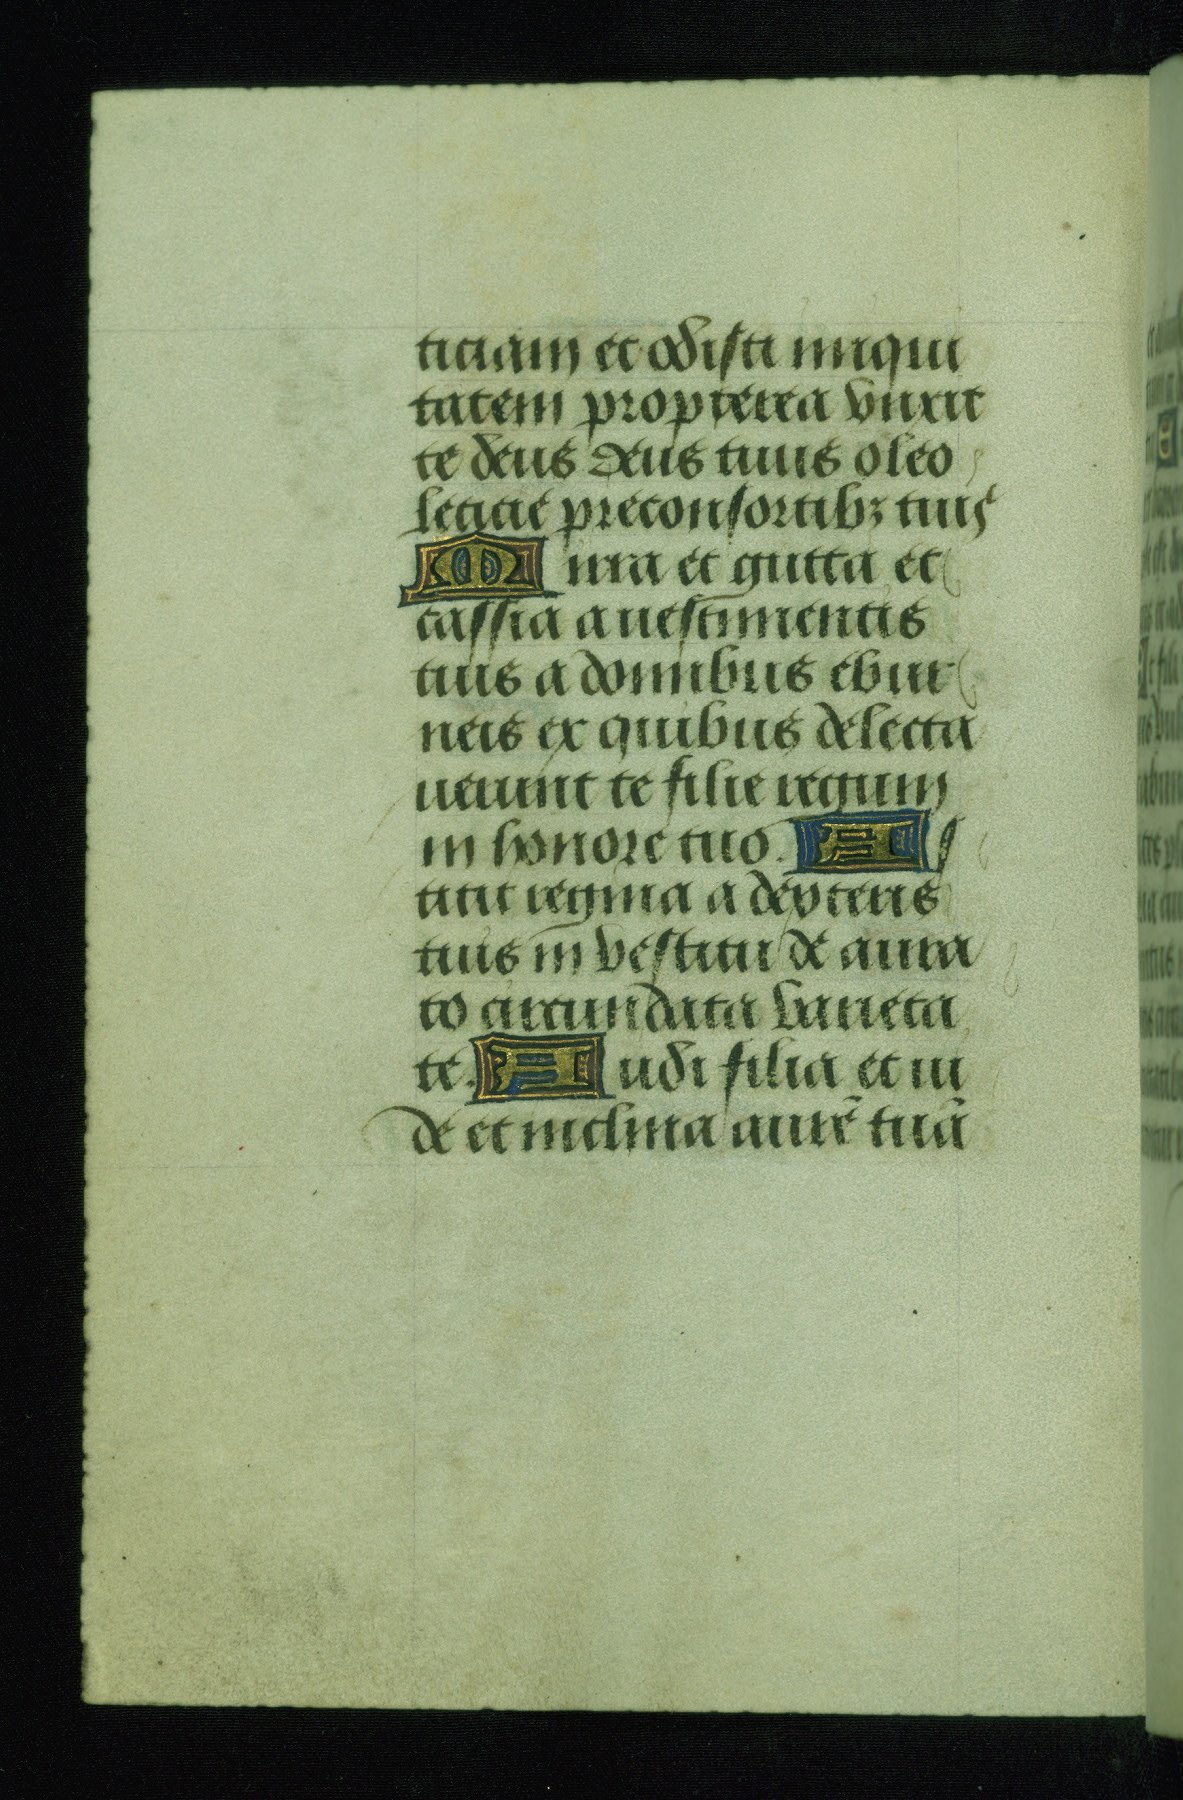 ticiam et odisti iniqui
tatem propterea vnxit
te deus deus tuus oleo
leticie preconsortibꝫ tuis
Mirra et gutta et
cassia a uestimentis
tuis a domibus ebur
neis ex quibus delecta
uerunt te filie regum
in honore tuo. As
titit regina a dexteris
tuis in vestitu de aura
to circundata varieta
te. Audi filia et ui
de et inclina aurē tuā